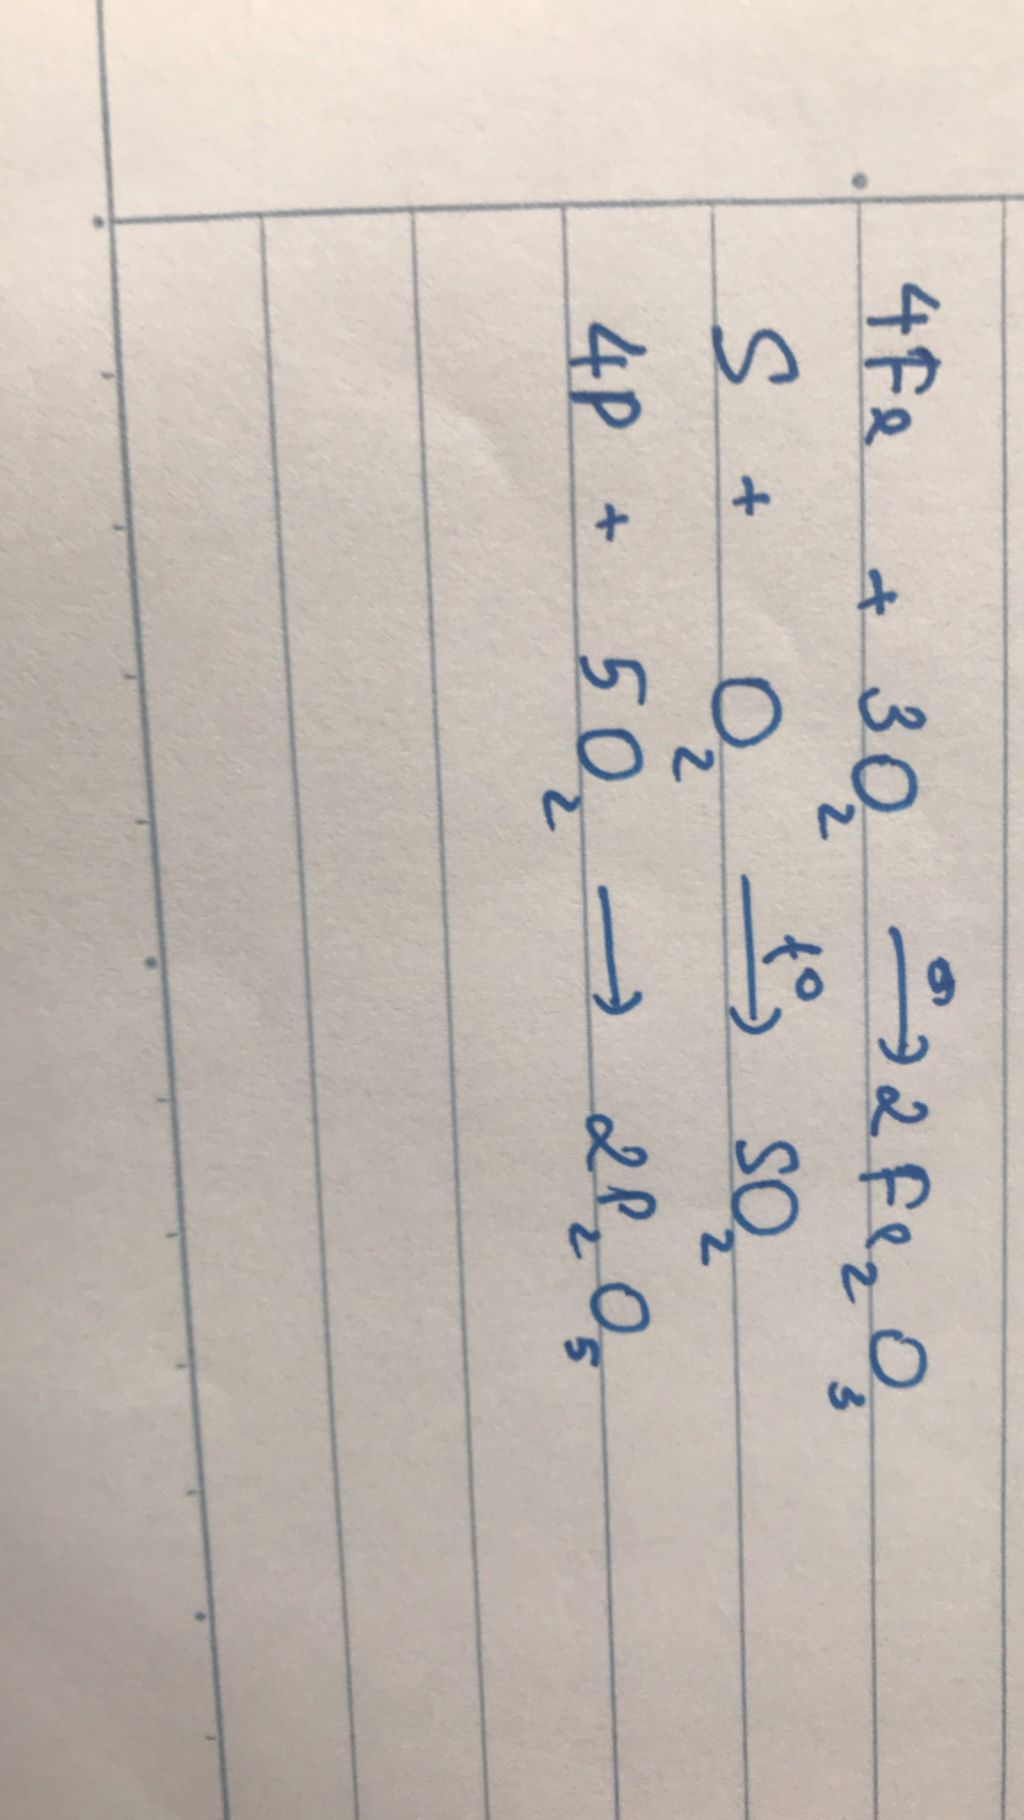 4Fe + 3O₂ → 2Fe₂O₃
S + O₂ →t° SO₂
4P + 5O₂ → 2P₂O₅